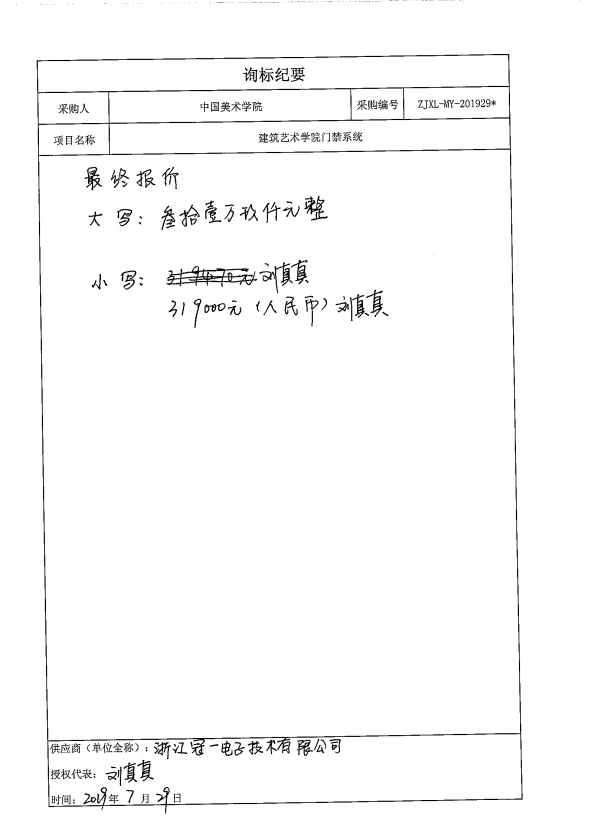 询标纪要
采购人 中国美术学院 采购编号 ZJXL-MY-201929*
项目名称 建筑艺术学院门禁系统
最终报价
大写：叁拾壹万玖仟元整
小写：319470元 刘真真
319000元（人民币）刘真真
供应商（单位全称）：浙江冠一电子技术有限公司
授权代表：刘真真
时间：2019年7月29日